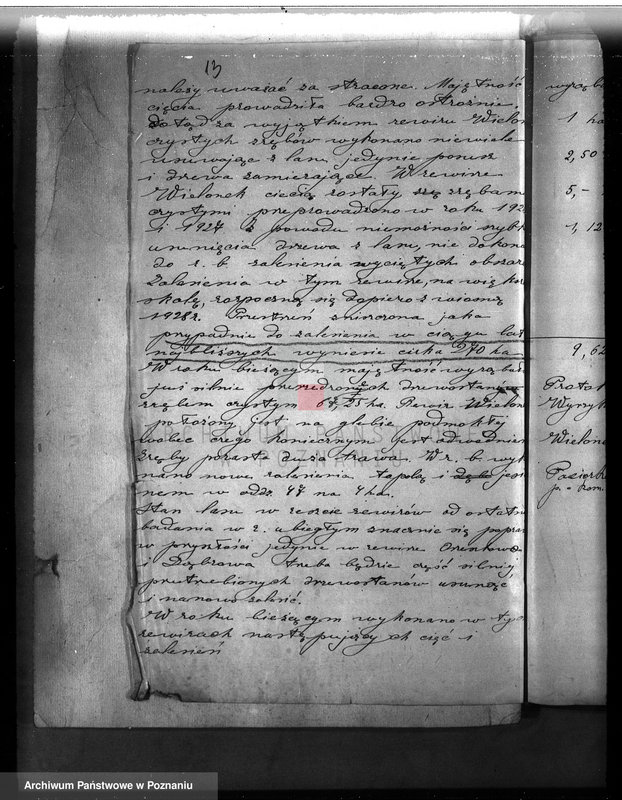 13
należy uważać za stracone. Majętność
cięcia prowadziła bardzo ostrożnie,
dotąd za wyjątkiem rewiru Wielon
czystych zrębów wykonano niewiele
usuwając z lasu jedynie posusz
i drzewa zamierające. W rewirze
Wielonek cięcia zostały się zrębami
czystymi przeprowadzone w roku 192
i 1927 z powodu niemożności szybk
usunięcia drzewa z lasu, nie dokona
do r. b. zalesienia wyciętych obszar
Zalesienia w tym rewirze, na większ
skalę, rozpoczną się dopiero z wiosną
1928 r. Przestrzeń zniszczona jaka
przypadnie do zalesienia w ciągu lat
najbliższych wyniesie cirka 270 ha
W roku bieżącym majętność wyrąbała
już silnie przerzedzonych drzewostanów
zrębem czystym 67,25 ha. Rewir Wielon
położony jest na glebie podmokłej
wobec czego koniecznym jest odwodnien
Zręby porasta duża trawa. W r. b. wyk
nano nowe zalesienia topolą i jesio
nem w oddz. 47 na 4 ha.
Stan lasu w reszcie rewirów od ostatn
badania w r. ubiegłym znacznie się popraw
w przyszłości jedynie w rewirze
i Dąbrowa trzeba będzie część silniej
przetrzebionych drzewostanów usunąć
i na nowo zalesić.
W roku bieżącym wykonano w tych
rewirach następujących cięć i
zalesień
wyrąb
1 ha
2,50
5,-
1,12
9,62
Protok
Wyryk
Wielon
Pasierb
Archiwum Państwowe w Poznaniu